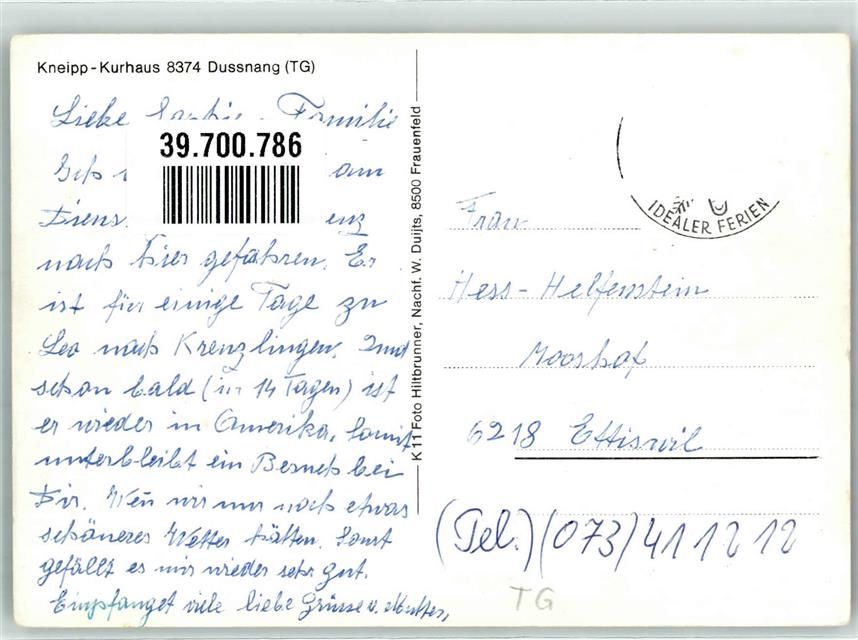 Kneipp-Kurhaus 8374 Dussnang (TG)
Liebe Familie
39.700.786
am
Diens enz
nach hier gefahren. Er
ist für einige Tage zu
Leo nach Kreuzlingen. Und
schon bald (in 14 Tagen) ist
er wieder in Amerika. Somit
unterbleibt ein Besuch bei
Dir. Wen wir nur noch etwas
schöneres Wetter hätten. Sonst
gefällt es mir wieder sehr gut.
Empfanget viele liebe Grüsse v. Mutter,
K 11 Foto Hiltbrunner, Nachf. W. Duijts, 8500 Frauenfeld
IDEALER FERIEN
Frau
Hess-Helfenstein
Mooshof
6218 Ettiswil
(Tel.) (073) 41 12 12
TG